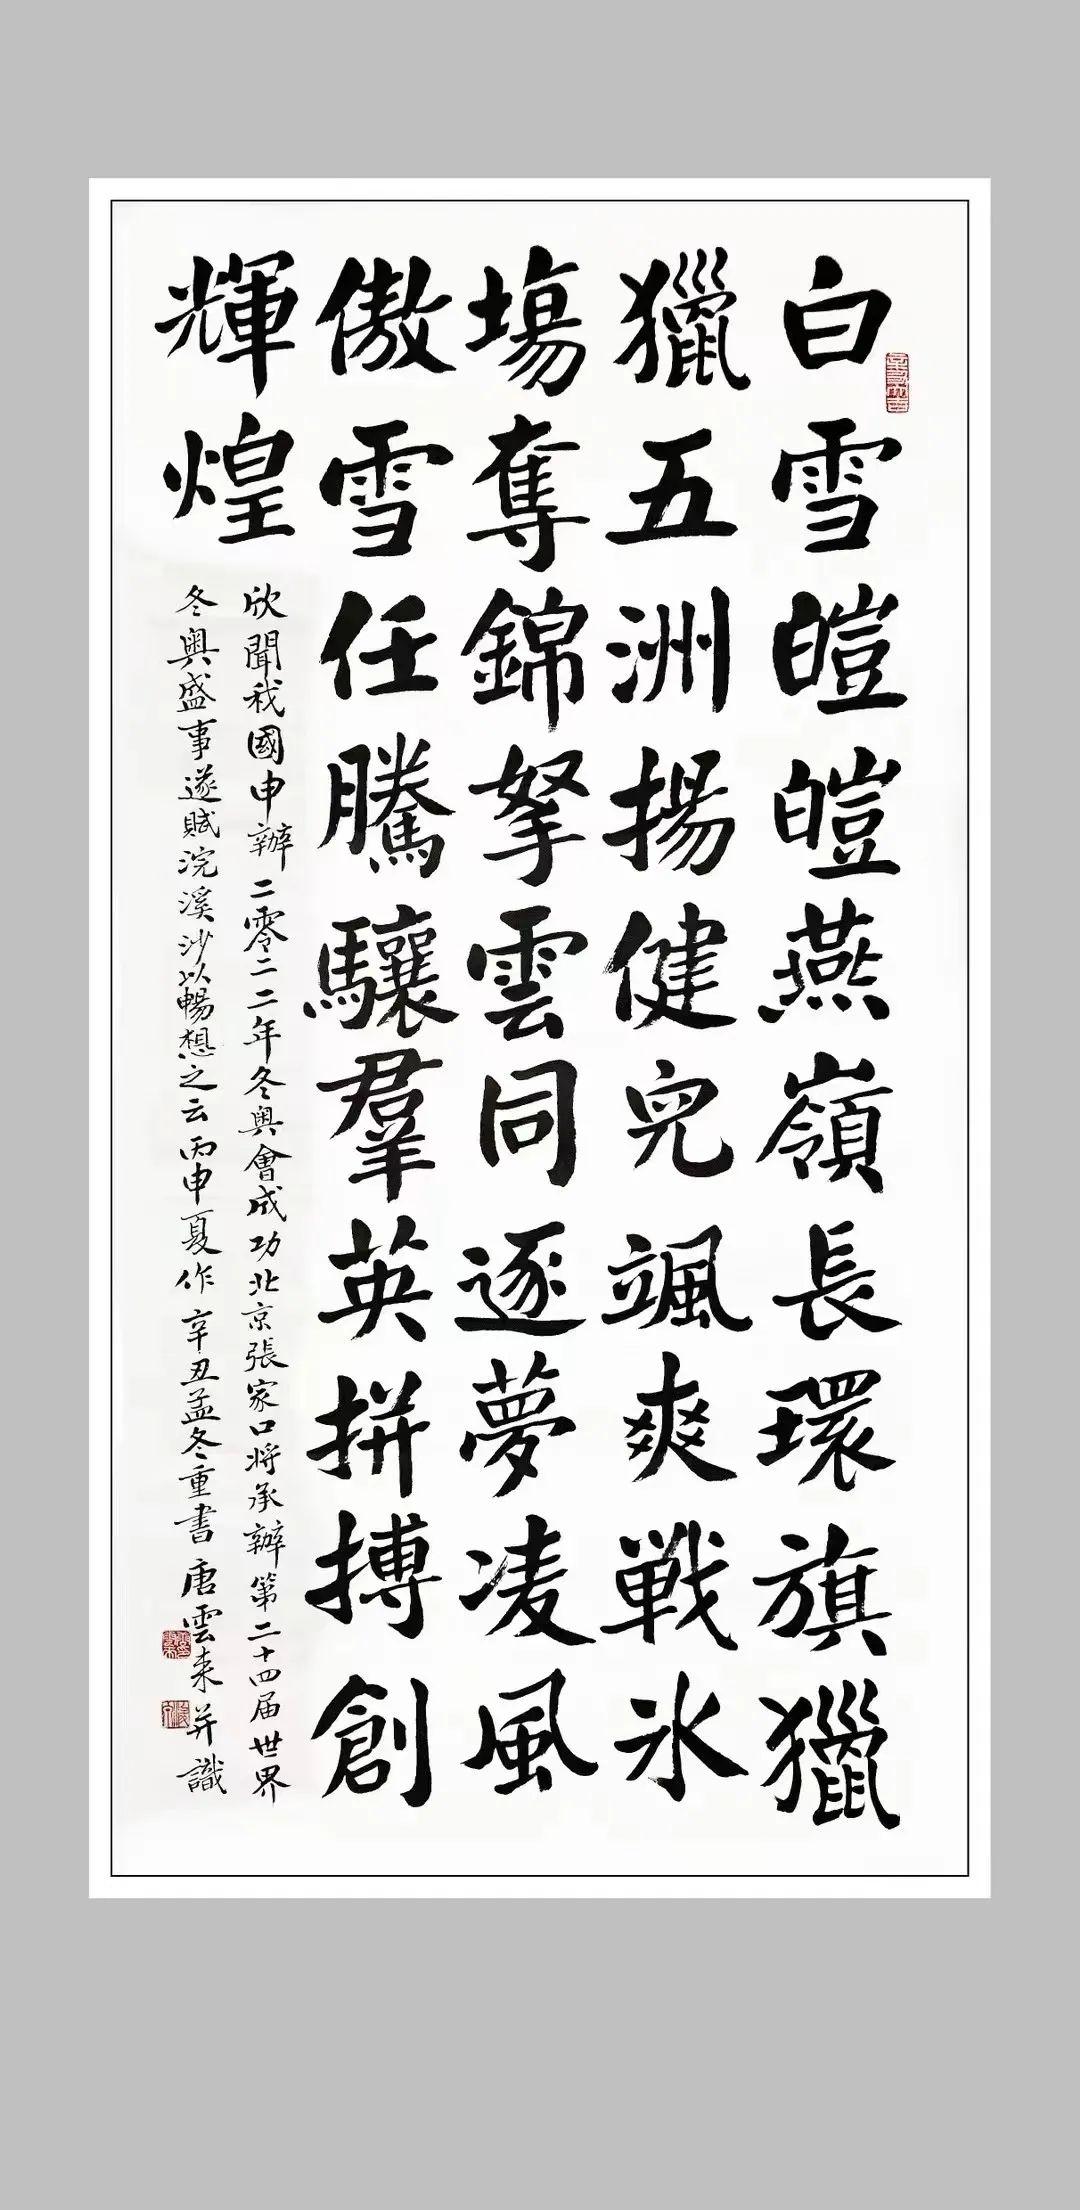 白雪皚皚燕嶺長環旗獵
獵五洲揚健兒颯爽戰氷
塲奪錦拏雲同逐夢凌風
傲雪任騰驤羣英拼搏創
輝煌
欣聞我國申辦二零二二年冬奥會成功北京張家口將承辦第二十四届世界
冬奥盛事遂賦浣溪沙以暢想之云丙申夏作辛丑孟冬重書唐雲来并識